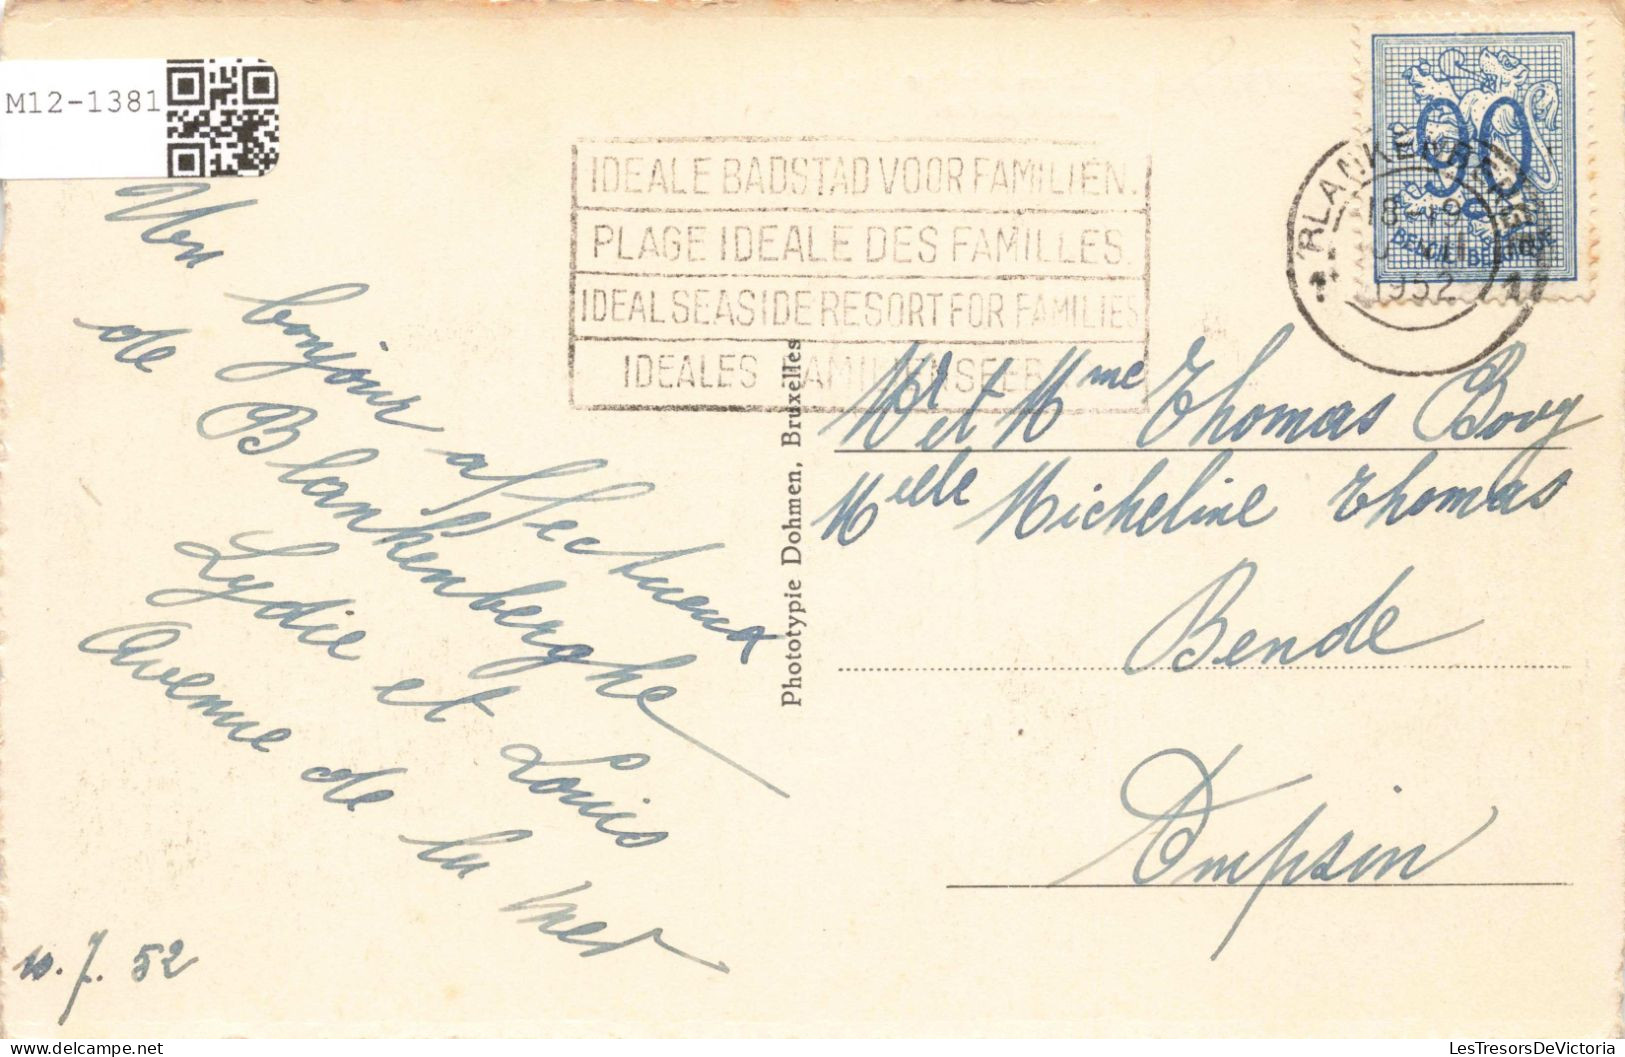 M12-1381
IDEALE BADSTAD VOOR FAMILIËN.
PLAGE IDEALE DES FAMILLES.
IDEAL SEASIDE RESORT FOR FAMILIES
IDEALES
90
BELGIE-BELGIQUE
BLANKENBERGE
1952
1
Un bonjour affectueux
de Blankenberghe
Lydie et Louis
Avenue de la mer
10.7.52
Phototypie Dohmen, Bruxelles
Mr et Mme Thomas Bovy
Melle Micheline Thomas
Bende
Ompsin
LesTresorsDeVictoria